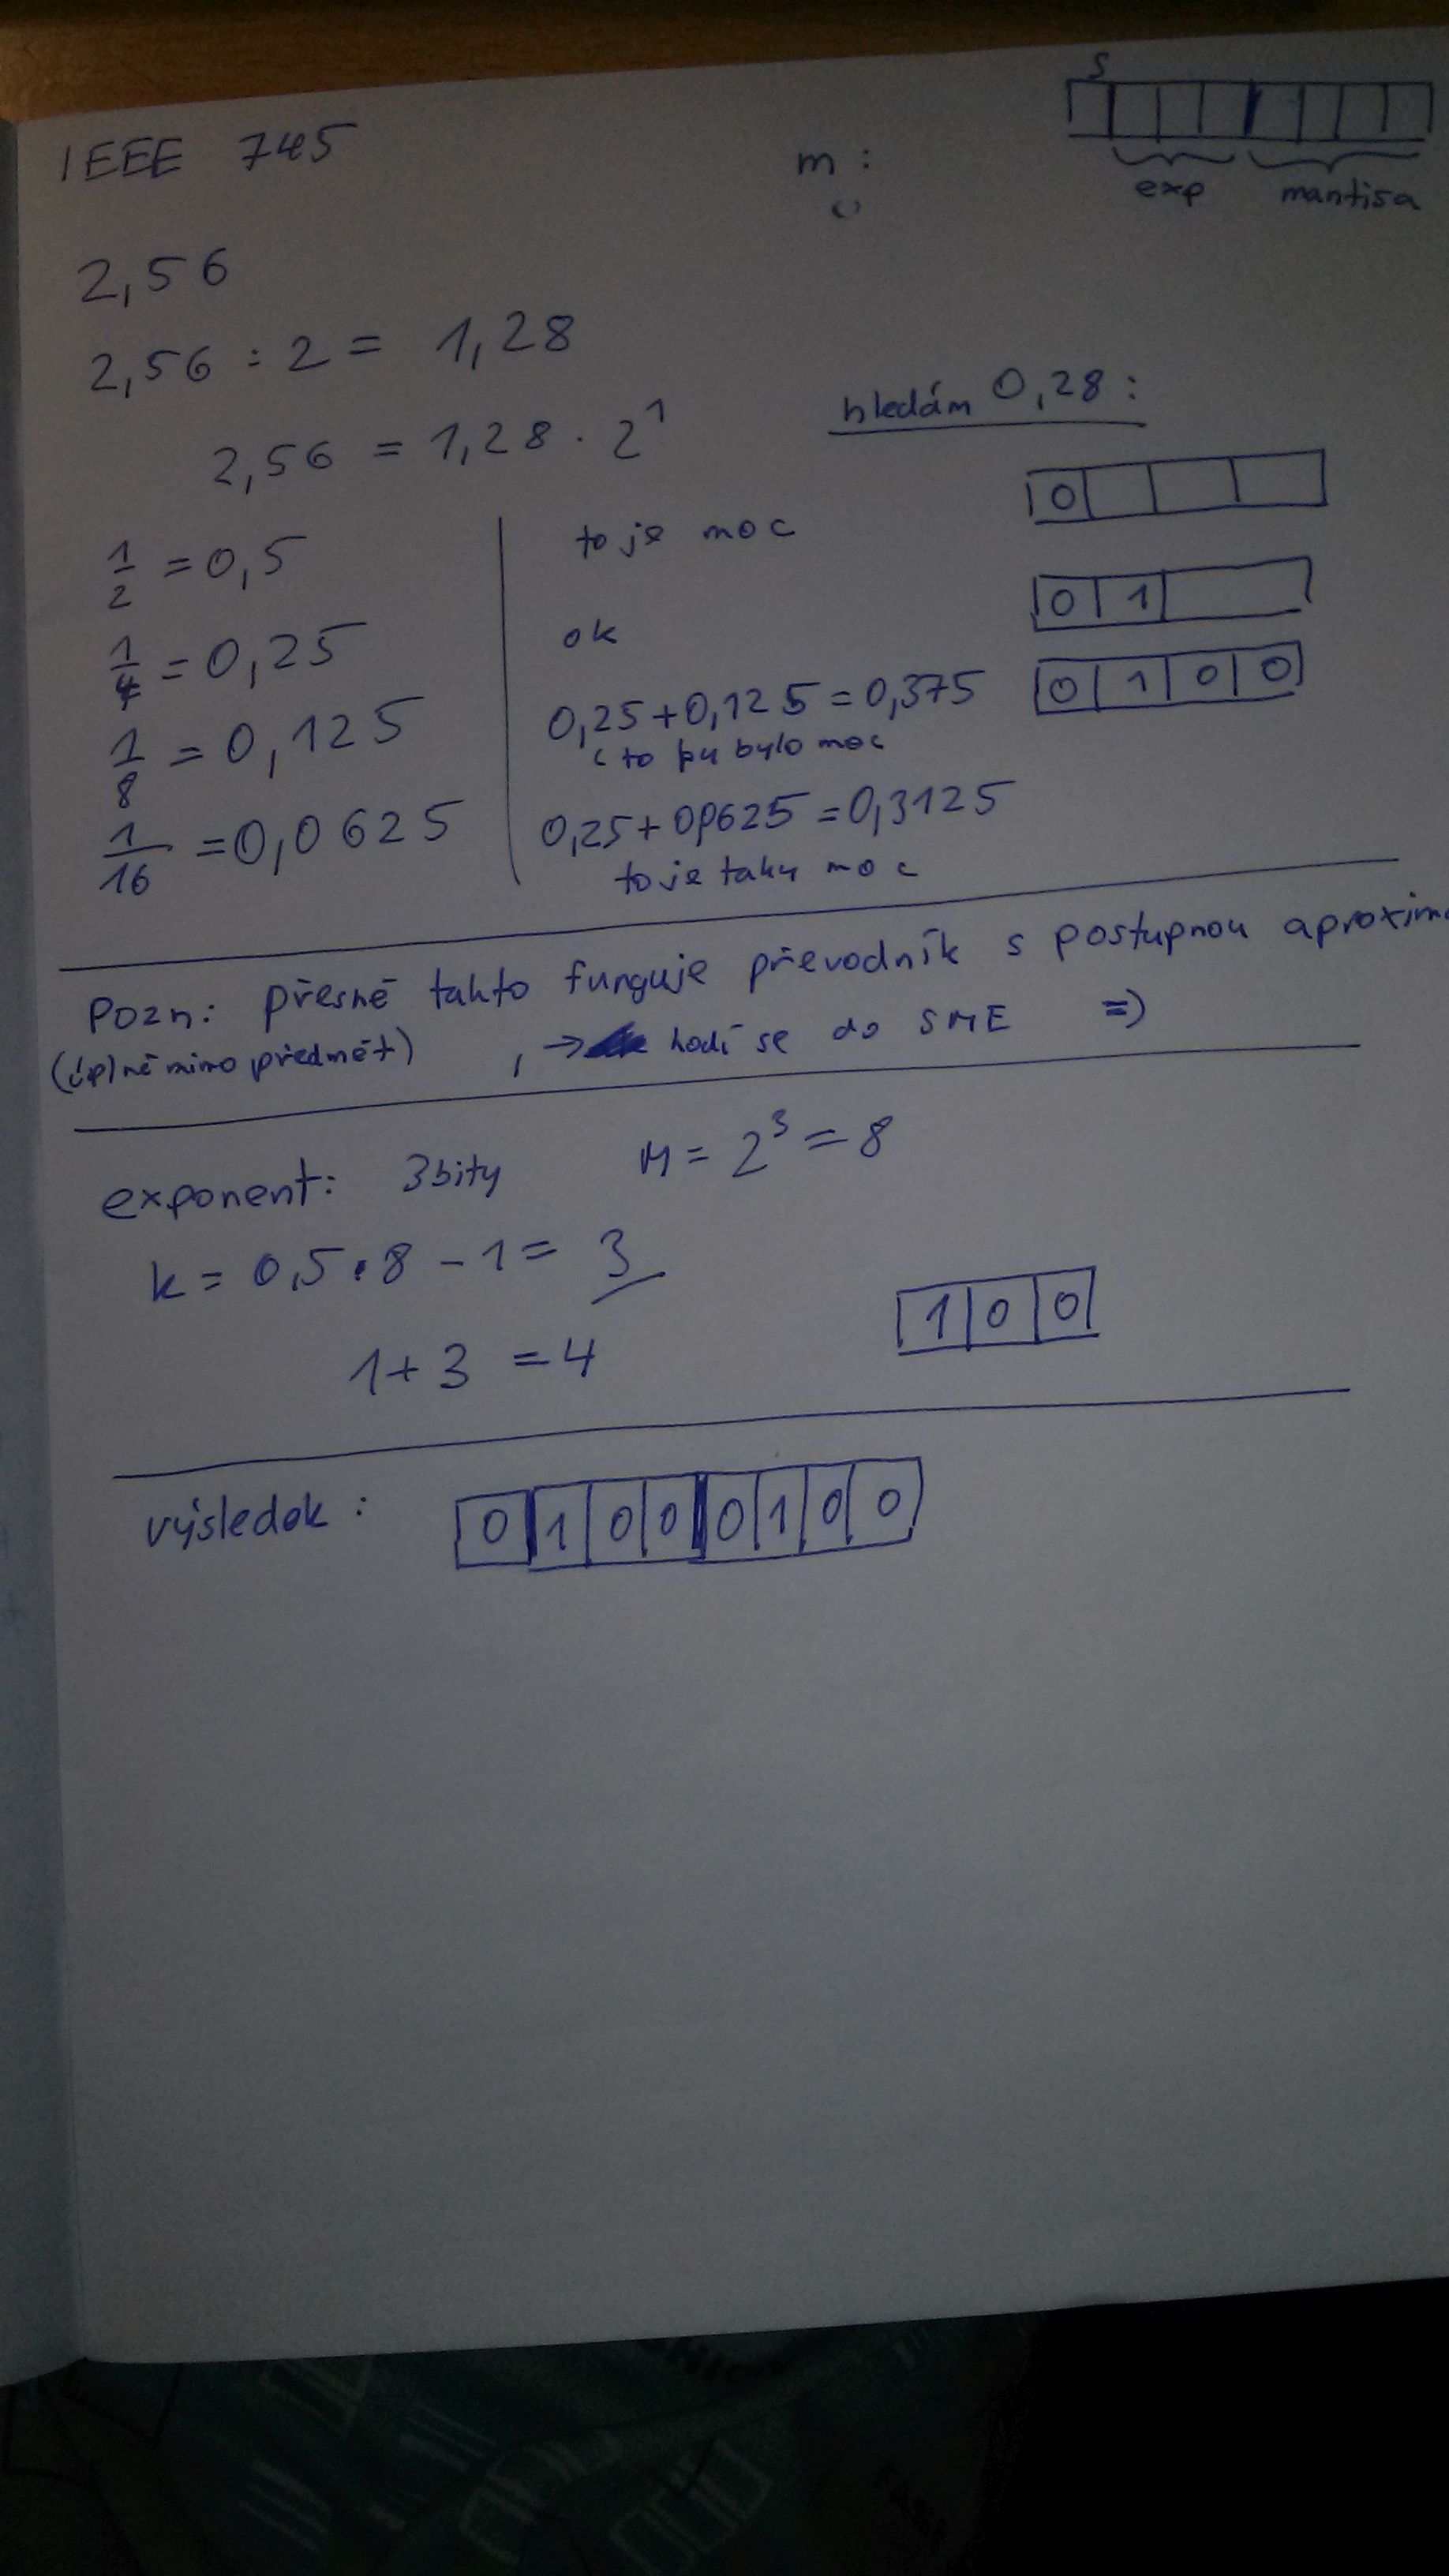 IEEE 745
m :
S
exp mantisa
2,56
2,56 : 2 = 1,28
2,56 = 1,28 · 2^1
hledám 0,28 :
1/2 = 0,5 to je moc 0
1/4 = 0,25 ok 0 1
1/8 = 0,125 0,25+0,125=0,375 0 1 0 0
to by bylo moc
1/16 = 0,0625 0,25+0,0625=0,3125
to je taky moc
Pozn: přesně takto funguje převodník s postupnou aproxim
(úplně mimo předmět) , → hodí se do SME =)
exponent: 3bity M = 2^3 = 8
k = 0,5·8 - 1 = 3
1+3 = 4 1 0 0
výsledek : 0 1 0 0 0 1 0 0